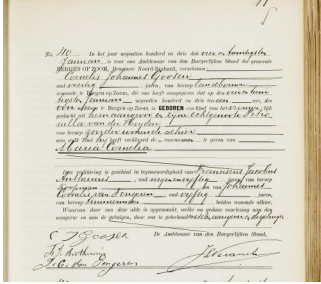 No. 40 In het jaar negentien honderd en drie den vier en twintigsten
Januari is voor ons Ambtenaar van den Burgerlijken Stand der gemeente
BERGEN OP ZOOM, Provincie Noord-Brabant, verschenen
Cornelis Johannes Goossen
oud veertig jaren, van beroep landbouwer
wonende te Bergen op Zoom, die ons heeft aangegeven dat op den vier en twin
tigsten Januari negentien honderd en drie ten ure, des
is GEBOREN een kind van het vrouwelijk
geslacht uit hem aangever en zijne echtgenoote Petro
nella van der Heyden
van beroep zonder wonende alhier
aan welk kind hij heeft verklaard de voornamen te geven van
Maria Cornelia
Deze verklaring is geschied in tegenwoordigheid van Franciscus Jacobus
oud jaren van beroep
en van Johannes
Cornelis van Dongeren oud vijftig jaren
van beroep timmerman beiden wonende alhier.
Waarvan door ons deze akte is opgemaakt, welke na gedane voorlezing aan den
aangever en aan de getuigen, door ons is geteekend
De Ambtenaar van den Burgerlijken Stand,
C J Goossen
J. C. Van Dongeren